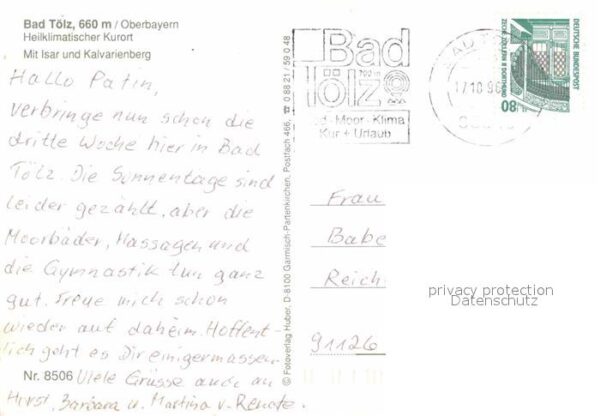 Bad Tölz, 660 m / Oberbayern
Heilklimatischer Kurort
Mit Isar und Kalvarienberg
Hallo Patin,
verbringe nun schon die
dritte Woche hier in Bad
Tölz. Die Sonnentage sind
leider gezählt, aber die
Moorbäder, Massagen und
die Gymnastik tun ganz
gut. Freue mich schon
wieder auf daheim. Hoffent-
lich geht es Dir einigermassen.
Nr. 8506 Viele Grüsse auch an
Horst, Barbara u. Martina v. Renate.
© Fotoverlag Huber, D-8100 Garmisch-Partenkirchen, Postfach 466, ☎ 0 88 21 / 5 90 48
Bad
Tölz
Moor-Klima
Kur + Urlaub
17.10.96
DEUTSCHE BUNDESPOST
ZECHE ZOLLERN II DORTMUND
80
Frau
Babe
Reich
91126
privacy protection
Datenschutz